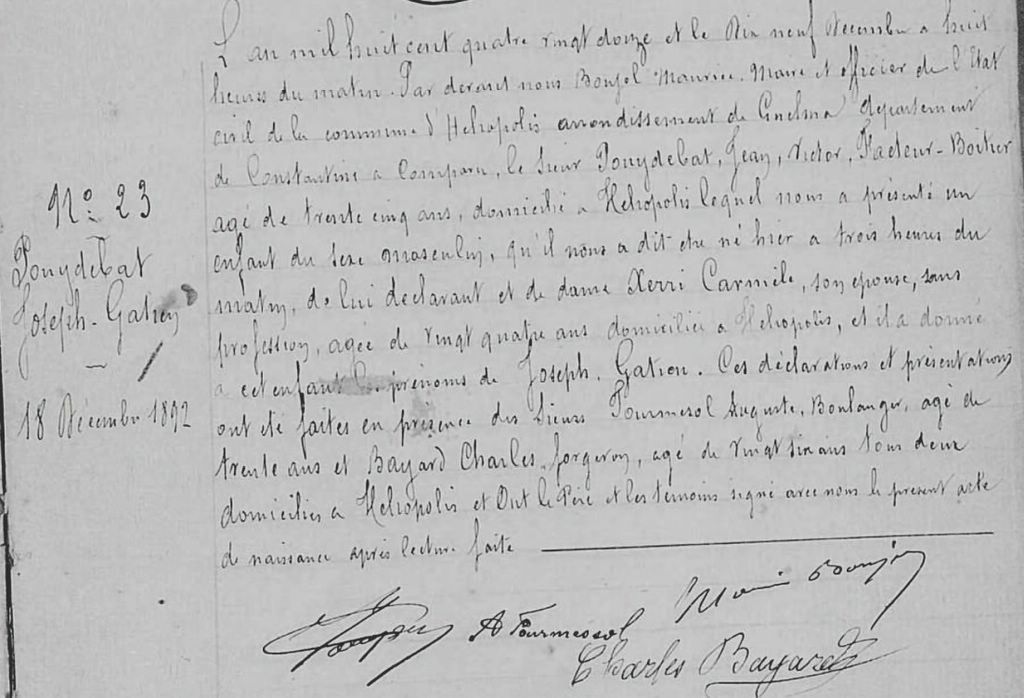 N° 23
Pouydebat
Joseph-Gatien
18 Décembre 1892
L'an mil huit cent quatre vingt douze et le Dix neuf Décembre à huit
heures du matin. Par devant nous Boujol Maurice, Maire et officier de l'Etat
civil de la commune d'Héliopolis arrondissement de Guelma département
de Constantine a comparu, le sieur Pouydebat, Jean, Victor, Facteur-Boitier
agé de trente cinq ans, domicilié à Héliopolis lequel nous a présenté un
enfant du sexe masculin, qu'il nous a dit etre né hier à trois heures du
matin, de lui déclarant et de dame Xerri Carmèle, son épouse, sans
profession, agée de vingt quatre ans domiciliée à Héliopolis, et il a donné
à cet enfant les prénoms de Joseph, Gatien. Ces déclarations et présentations
ont été faites en présence des sieurs Fourmesol Auguste, Boulanger, agé de
trente ans et Bayard Charles, forgeron, agé de vingt six ans tous deux
domiciliés à Héliopolis et Ont le Père et les témoins signé avec nous le présent acte
de naissance après lecture faite
A Fourmesol
Charles Bayard